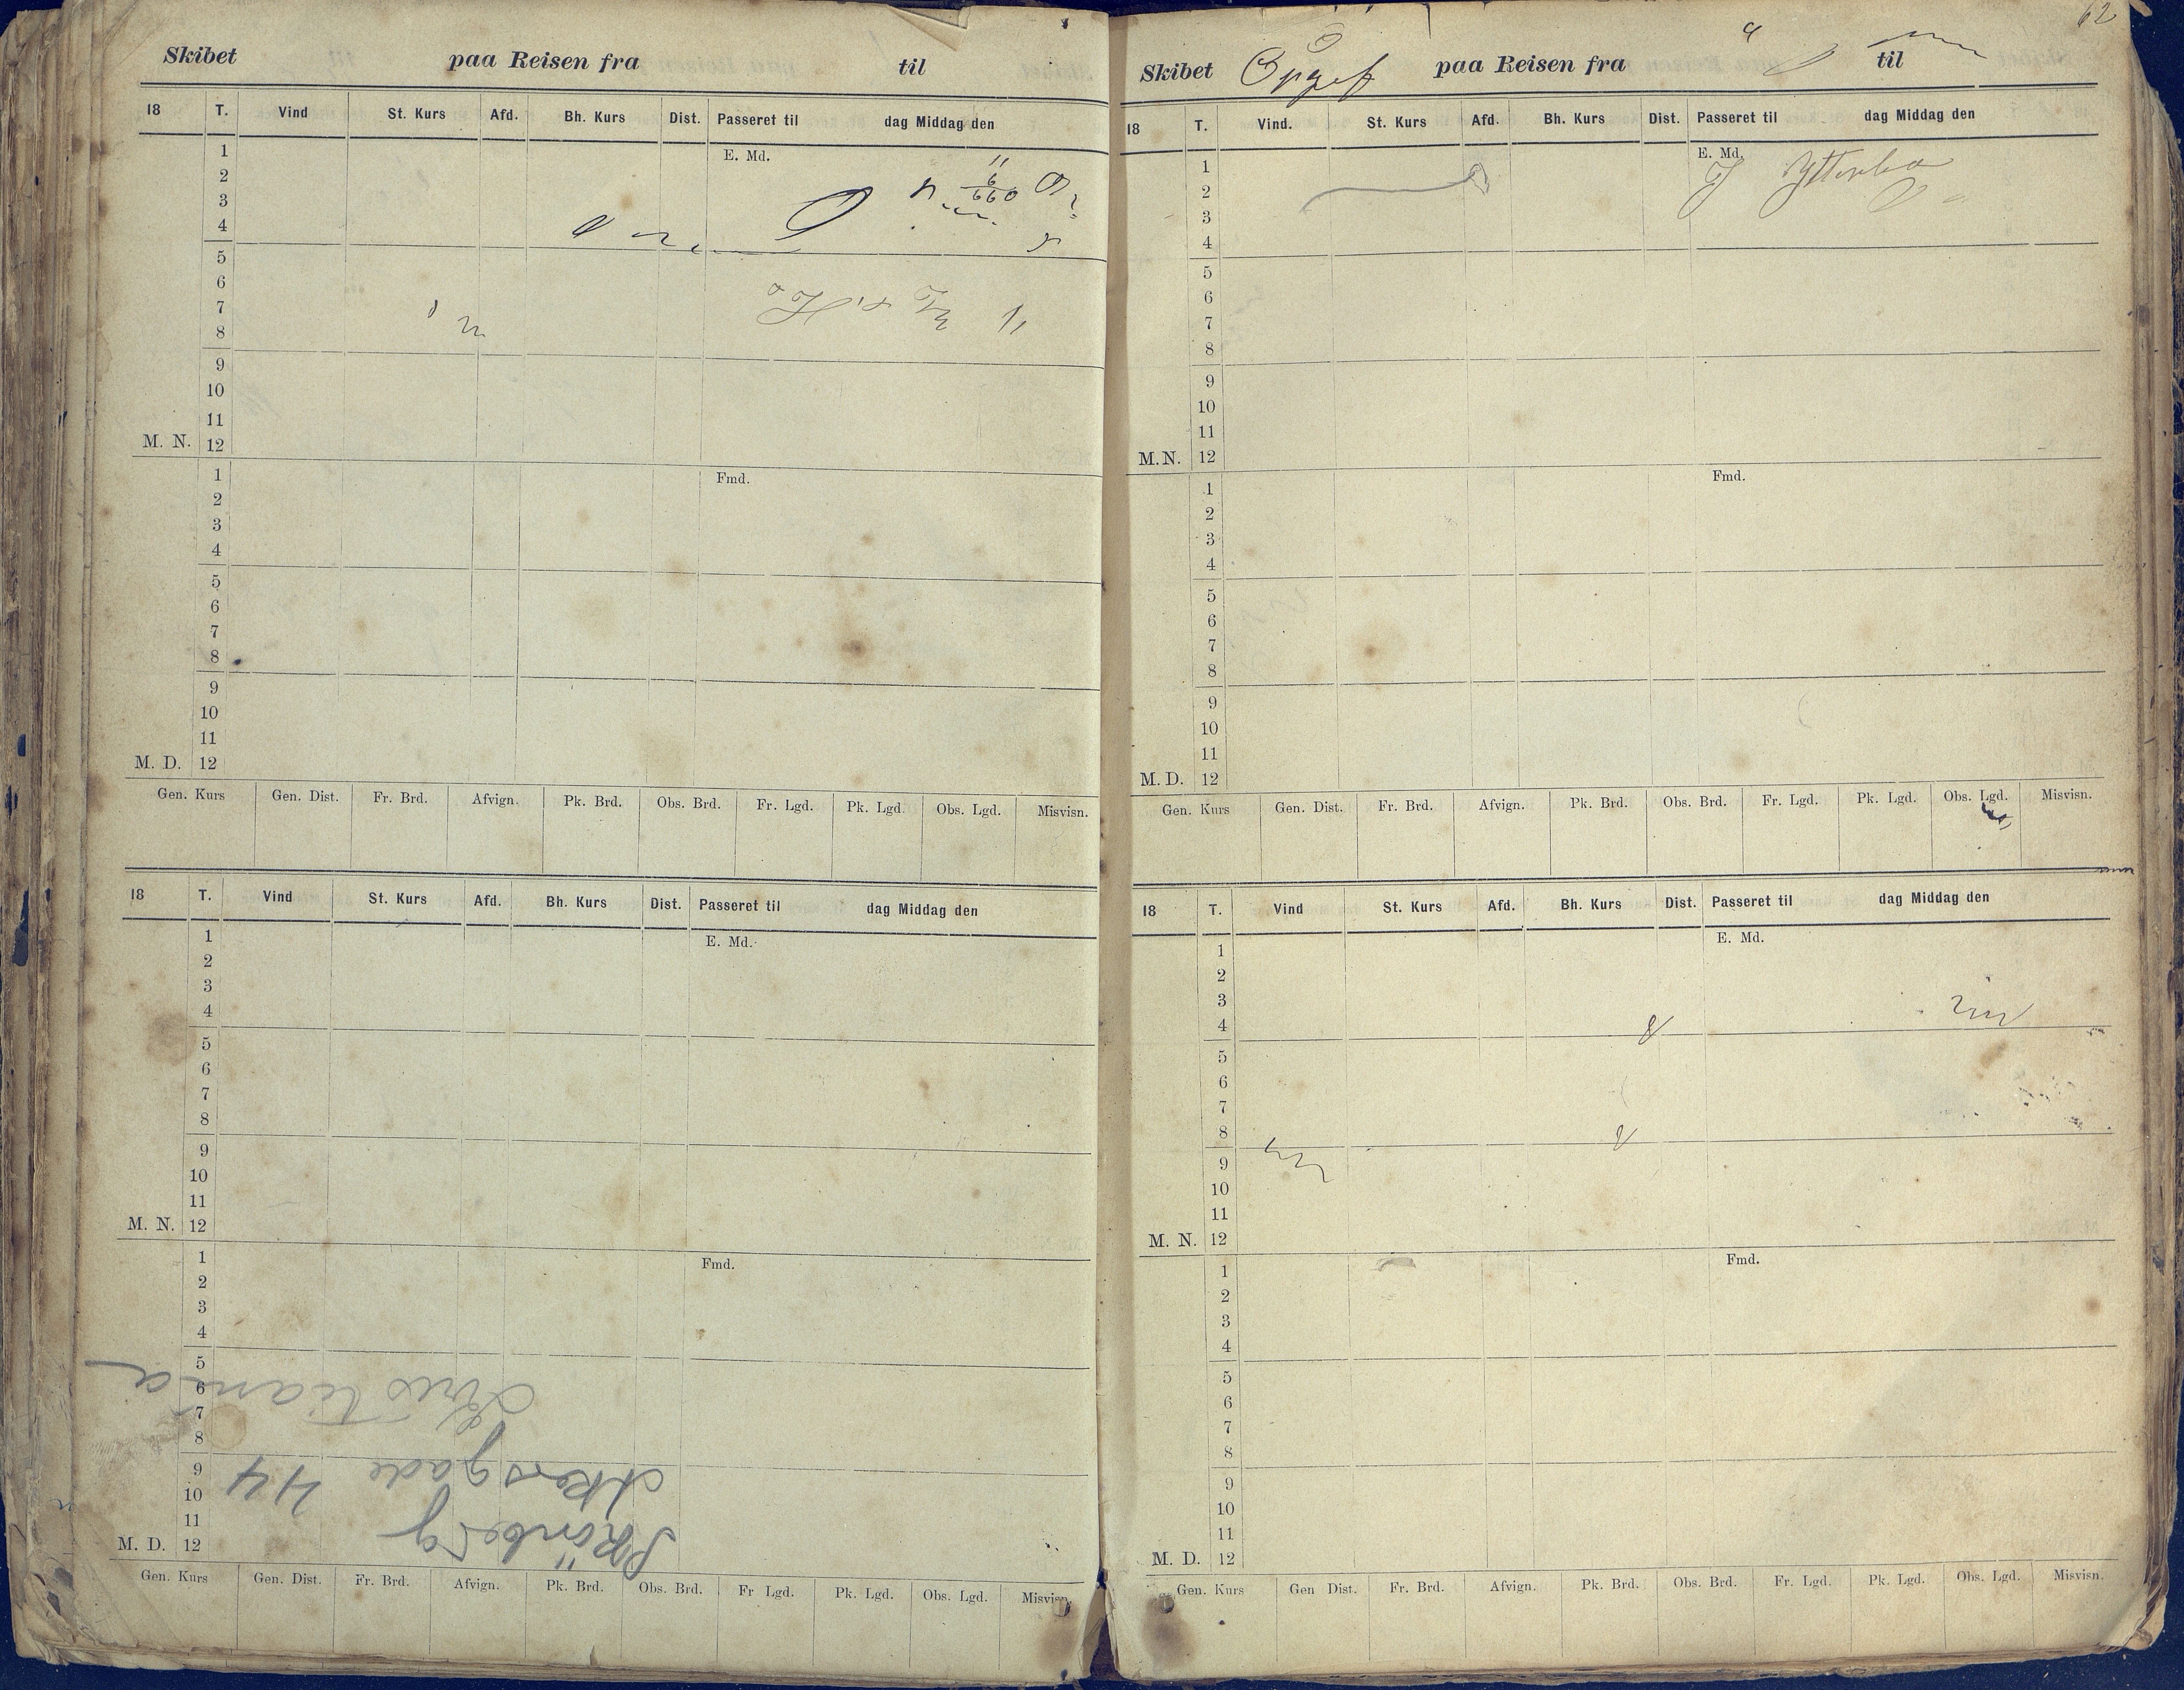 Skibet paa Reisen fra til
18 T. Vind St. Kurs Afd. Bh. Kurs Dist. Passeret til dag Middag den
1 E. Md.
2 6
3 660
4
5
6
7
8
9
10
11
M. N. 12
1 Fmd.
2
3
4
5
6
7
8
9
10
11
M. D. 12
Gen. Kurs Gen. Dist. Fr. Brd. Afvign. Pk. Brd. Obs. Brd. Fr. Lgd. Pk. Lgd. Obs. Lgd. Misvisn.
18 T. Vind St. Kurs Afd. Bh. Kurs Dist. Passeret til dag Middag den
1 E. Md.
2
3
4
5
6
7
8
9
10
11
M. N. 12
1 Fmd.
2
3
4
5
6
7
8
9
10
11
M. D. 12
Akersgade 44
Gen. Kurs Gen. Dist. Fr. Brd. Afvign. Pk. Brd. Obs. Brd. Fr Lgd. Pk. Lgd. Obs. Lgd. Misvisn.
62
Skibet paa Reisen fra til
18 T. Vind. St. Kurs Afd. Bh. Kurs Dist. Passeret til dag Middag den
1 E. Md. Ytterbo
2
3
4
5
6
7
8
9
10
11
M. N. 12
1 Fmd.
2
3
4
5
6
7
8
9
10
11
M. D. 12
Gen. Kurs Gen. Dist. Fr. Brd. Afvign. Pk. Brd. Obs. Brd. Fr. Lgd. Pk. Lgd. Obs. Lgd. Misvisn.
18 T. Vind St. Kurs Afd. Bh. Kurs Dist. Passeret til dag Middag den
1 E. Md.
2
3
4
5
6
7
8
9
10
11
M. N. 12
1 Fmd.
2
3
4
5
6
7
8
9
10
11
M. D. 12
Gen. Kurs Gen Dist. Fr. Brd. Afvign. Pk. Brd. Obs. Brd. Fr. Lgd. Pk. Lgd. Obs. Lgd. Misvisn.